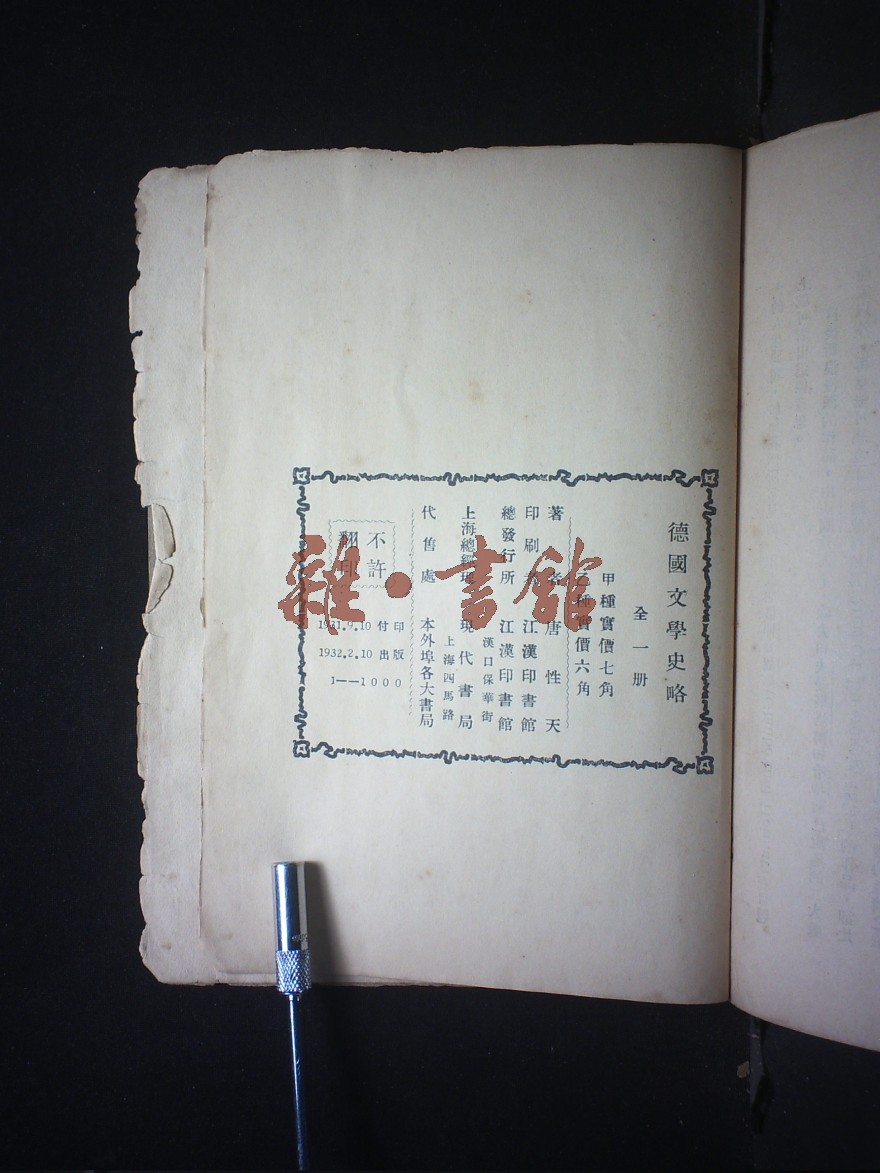 德國文學史略
全一册
甲種實價七角
乙種實價六角
著者 唐性天
印刷者 江漢印書館
總發行所 江漢印書館
漢口保華街
上海總經理 現代書局
上海四馬路
代售處 本外埠各大書局
不許
翻印
1931.9.10 付印
1932.2.10 出版
1——1000
雜·書館